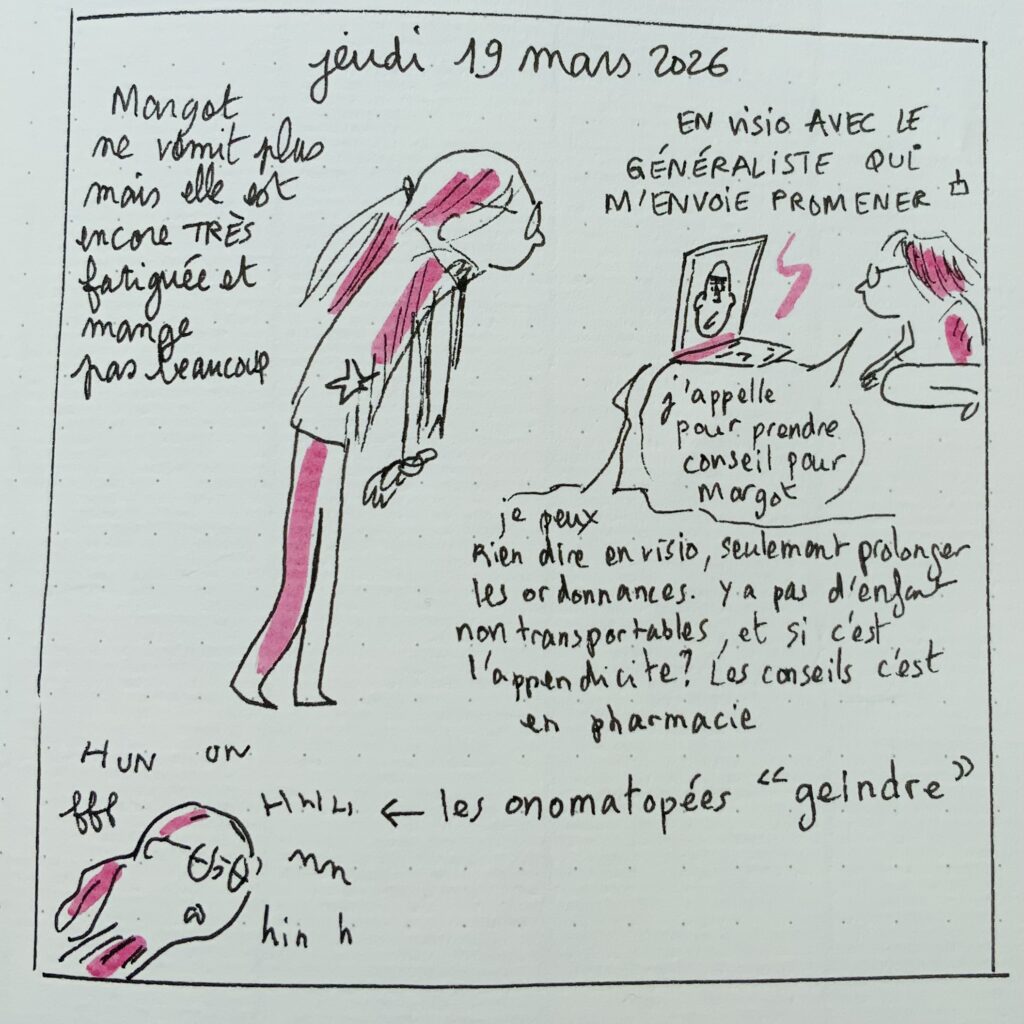 jeudi 19 mars 2026
Margot
ne vomit plus
mais elle est
encore TRÈS
fatiguée et
mange
pas beaucoup
EN visio AVEC LE
GÉNÉRALISTE QUI
M'ENVOIE PROMENER
j'appelle
pour prendre
conseil pour
Margot
je peux
Rien dire en visio, seulement prolonger
les ordonnances. Y a pas d'enfant
non transportables, et si c'est
l'appendicite? Les conseils c'est
en pharmacie
HUN UN
fff
← les onomatopées "geindre"
nn
hin h